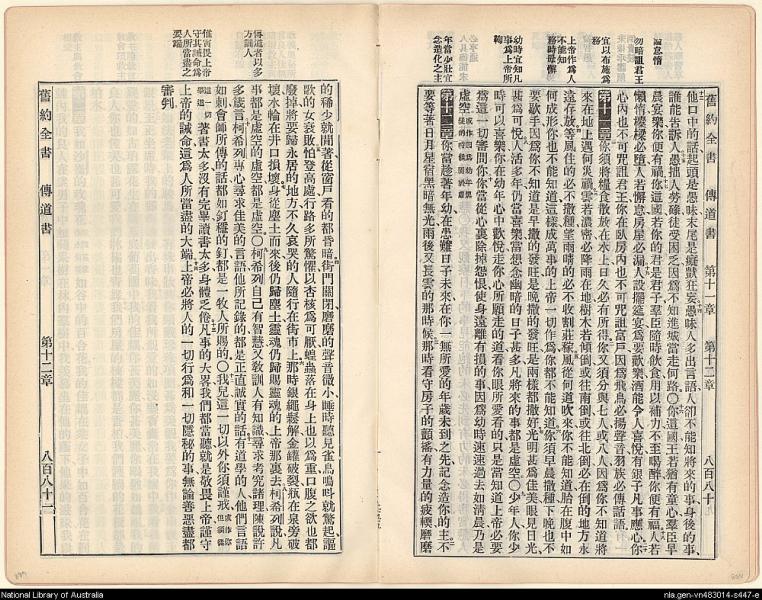 舊約全書 傳道書 第十一章 第十二章 八百八十
論怠惰
勿暗詛君王
宜以布施爲務
上帝作爲人不能知
務時毋懈
幼時宜知凡事爲上帝所鞫
年當少壯宜念造化之主
他口中的話起頭是愚昧末尾是癡獃狂妄愚昧人多出言語人卻不能知將來的事身後的事
誰能告訴人愚拙人勞碌徒受困乏因爲不知進城當走何路〇你這國王若有童心羣臣早
晨宴樂你便有禍你這國若你的君是君子羣臣隨時飲食用以補力不至喝醉你便有福人若
懶惰樓樑必墮人若懈怠房屋必漏人設擺筵宴爲要歡樂酒能令人喜悅有銀子凡事應心你
心內也不可咒詛君王你在臥房內也不可咒詛富戶因爲飛鳥必揚聲音羽族必傳話語
第十一章你須將糧食散放在水上日久必有所得你又須分與七人或八人因爲你不知道將
來在地上遇何災禍雲若濃密必降雨在地樹木若傾倒或往南倒或往北倒必在倒的地方永
遠存放等風住的必不撒種望雨晴的必不收割莊稼風從何道吹來你不能知道胎在腹中如
何成形你也不能知道這樣成萬事的上帝一切作爲你都不能知道你須早晨撒種下晚也不
要歇手因爲你不知道是早撒的發旺是晚撒的發旺是兩樣都撒好光明甚爲佳美眼見日光
甚爲可悅人活多年仍當喜樂當想念幽暗的日子甚多凡將來的事都是虛空〇少年人你少
時可以喜樂你在幼年心中歡悅走你心所願走的道看你眼所愛看的只是當知道上帝必要
爲這一切審問你你當從心裏除掉怨恨使身遠離有損的事因爲幼時速速過去如清晨乃是
虛空
第十二章你當趁著年幼在患難日子未來在你一無所愛的年歲未到之先記念造你的主不
要等著日月星宿黑暗無光雨後又長雲的那時候那時看守房子的顫搖有力量的疲輭磨磨
傳道者以多方訓人
催當畏上帝守其誡命爲人所當盡之要端
的稀少就閒著從窗戶看的都昏暗街門關閉磨磨的聲音微小睡時聽見雀鳥鳴呌就驚起謳
歌的女衰敗怕登高處行路多所驚懼以杏核爲可厭蝗蟲落在身上也以爲重口腹之欲也都
廢掉將要歸永居的地方不久哀哭的人隨行在街市上那時銀繩鬆解金罐破裂瓶在泉旁破
壞水輪在井口損壞身從塵土而來後仍歸塵土靈魂仍歸賜靈魂的上帝那裏去柯希列說凡
事都是虛空的虛空都是虛空〇柯希列自己有智慧又敎訓人有知識尋求考究諸理陳說許
多箴言柯希列專心尋求佳美的言語他所記錄的都是正直誠實的話有道學的人他們言語
如刺會師所傳的話都如釘穩的釘都是一牧人所賜的〇我兒這一切以外你須謹戒
著書太多沒有完畢讀書太多身體乏倦凡事的大畧我們都當聽就是敬畏上帝謹守
上帝的誡命這爲人所當盡的大端上帝必將人的一切行爲和一切隱秘的事無論善惡盡都
審判
舊約全書 傳道書 第十二章 八百八十一
National Library of Australia
nla.gen-vn483014-s447-e